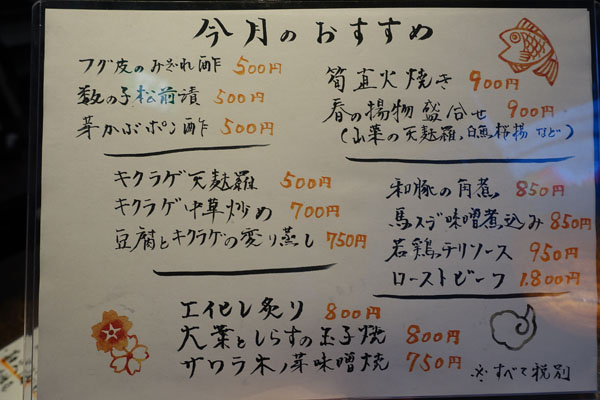 今月のおすすめ
フグ皮のみぞれ酢 500円
数の子松前漬 500円
芽かぶポン酢 500円
筍直火焼き 900円
春の揚物盛合せ 900円
(山菜の天麩羅、白魚桜揚など)
キクラゲ天麩羅 500円
キクラゲ中華炒め 700円
豆腐とキクラゲの変り蒸し 750円
和豚の角煮 850円
馬スジ味噌煮込み 850円
若鶏テリソース 950円
ローストビーフ 1.800円
エイヒレ炙り 800円
大葉としらすの玉子焼 800円
サワラ木ノ芽味噌焼 750円
※すべて税別